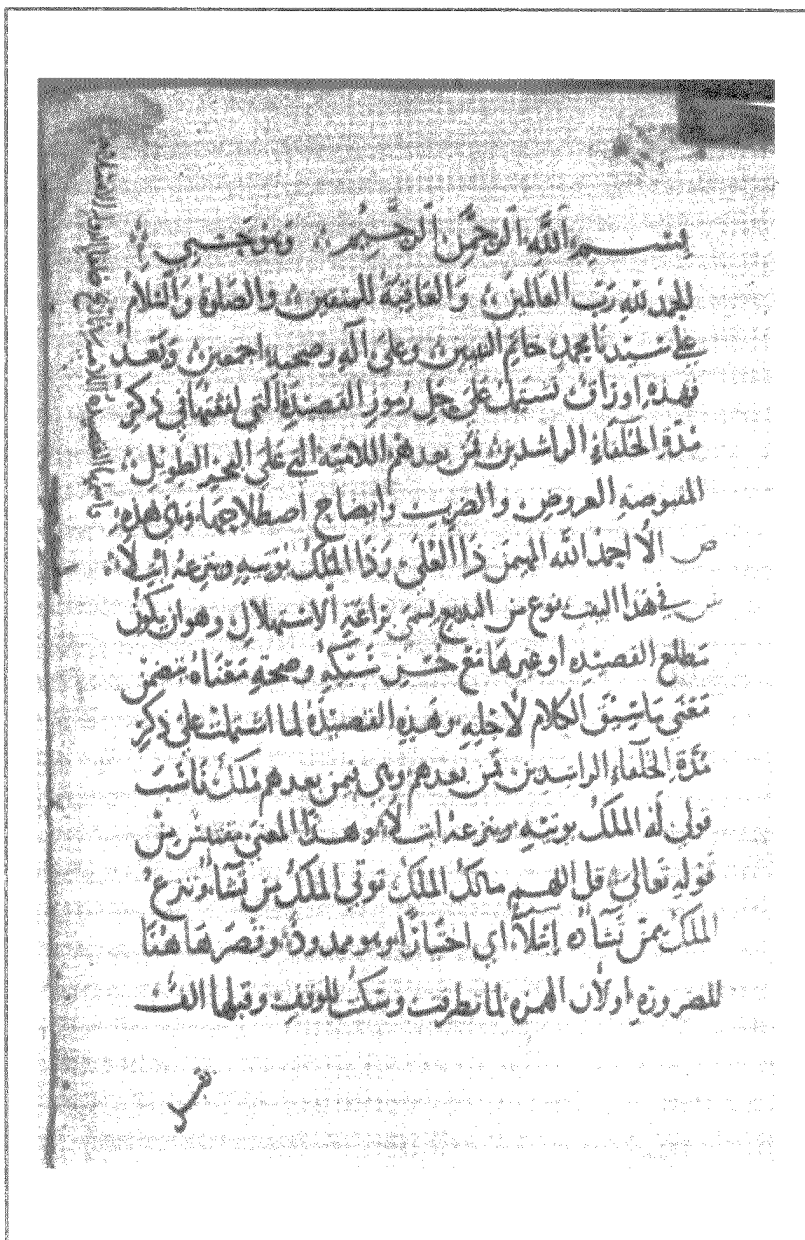 بسم الله الرحمن الرحيم وهو حسبي
الحمد لله رب العالمين والعاقبة للمتقين والصلوة والسلام
على سيدنا محمد خاتم النبيين وعلى آله وصحبه اجمعين وبعد
فهذه اوراق تشتمل على حل رموز القصيدة التي نظمتها في ذكر
مدة الخلفاء الراشدين فمن بعدهم اللامية التي على البحر الطويل
المقبوضة العروض والضرب وايضاح اصطلاحها وهي هذه
ص الا احمد الله المهيمن ذا العلى وذا الملك يوتيه وينزعه ابتلا
ش في هذا البيت نوع من البديع يسمى براعة الاستهلال وهو ان يكون
مطلع القصيدة او غيرها مع حسن سبكه وصحة معناه تضمن
معنى ما سيق الكلام لاجله وهذه القصيدة لما اشتملت على ذكر
مدة الخلفاء الراشدين فمن بعدهم وهي فيمن بعدهم ملك ناسب
قولي له الملك يوتيه وينزعه ابتلا وهذا المعنى مقتبس من
قوله تعالى قل اللهم مالك الملك توتي الملك من تشاء وتنزع
الملك ممن تشاء ابتلاء اي اختبارا وهو ممدود وقصرها هنا
للضرورة او لأن الهمزة لما تطرفت وسكنت للوقف وقبلها الف